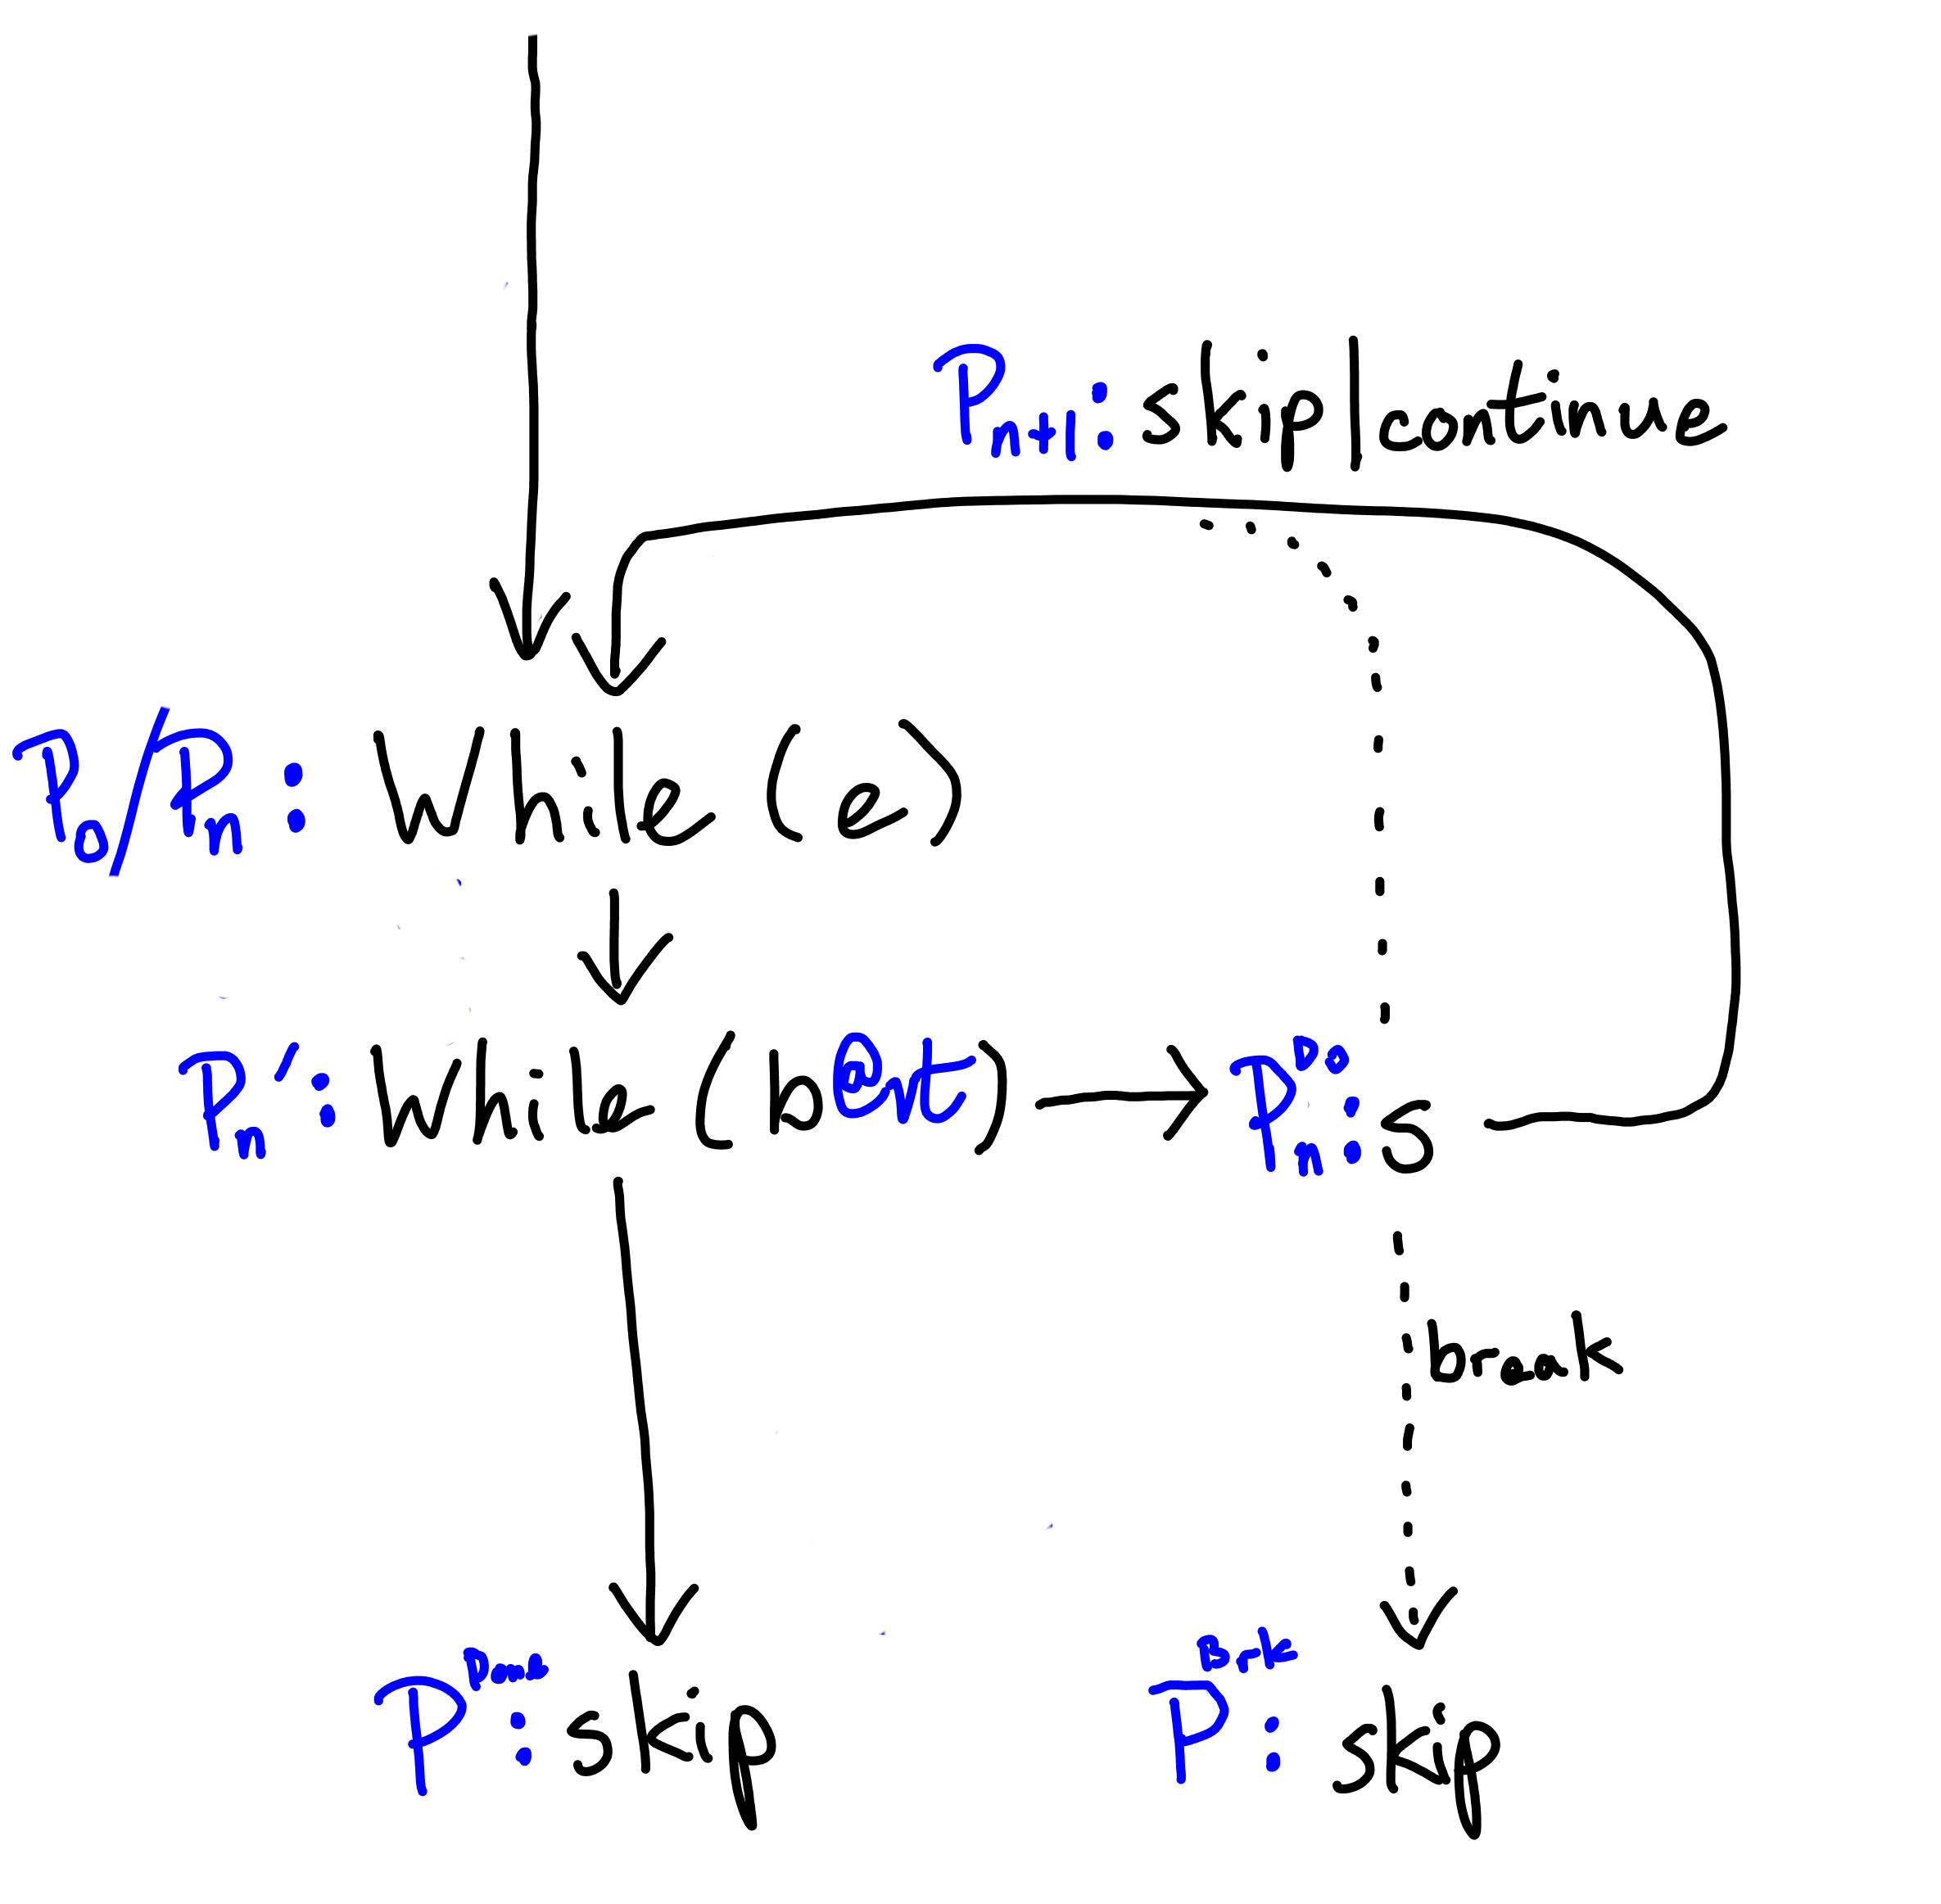 Pn+1: skip|continue
P0/Pn: While (e)
Pn': While (b@nt)
Pnᴮ: s
break
Pᴰᵒⁿᵉ: skip
Pᴮʳᵏ: skip